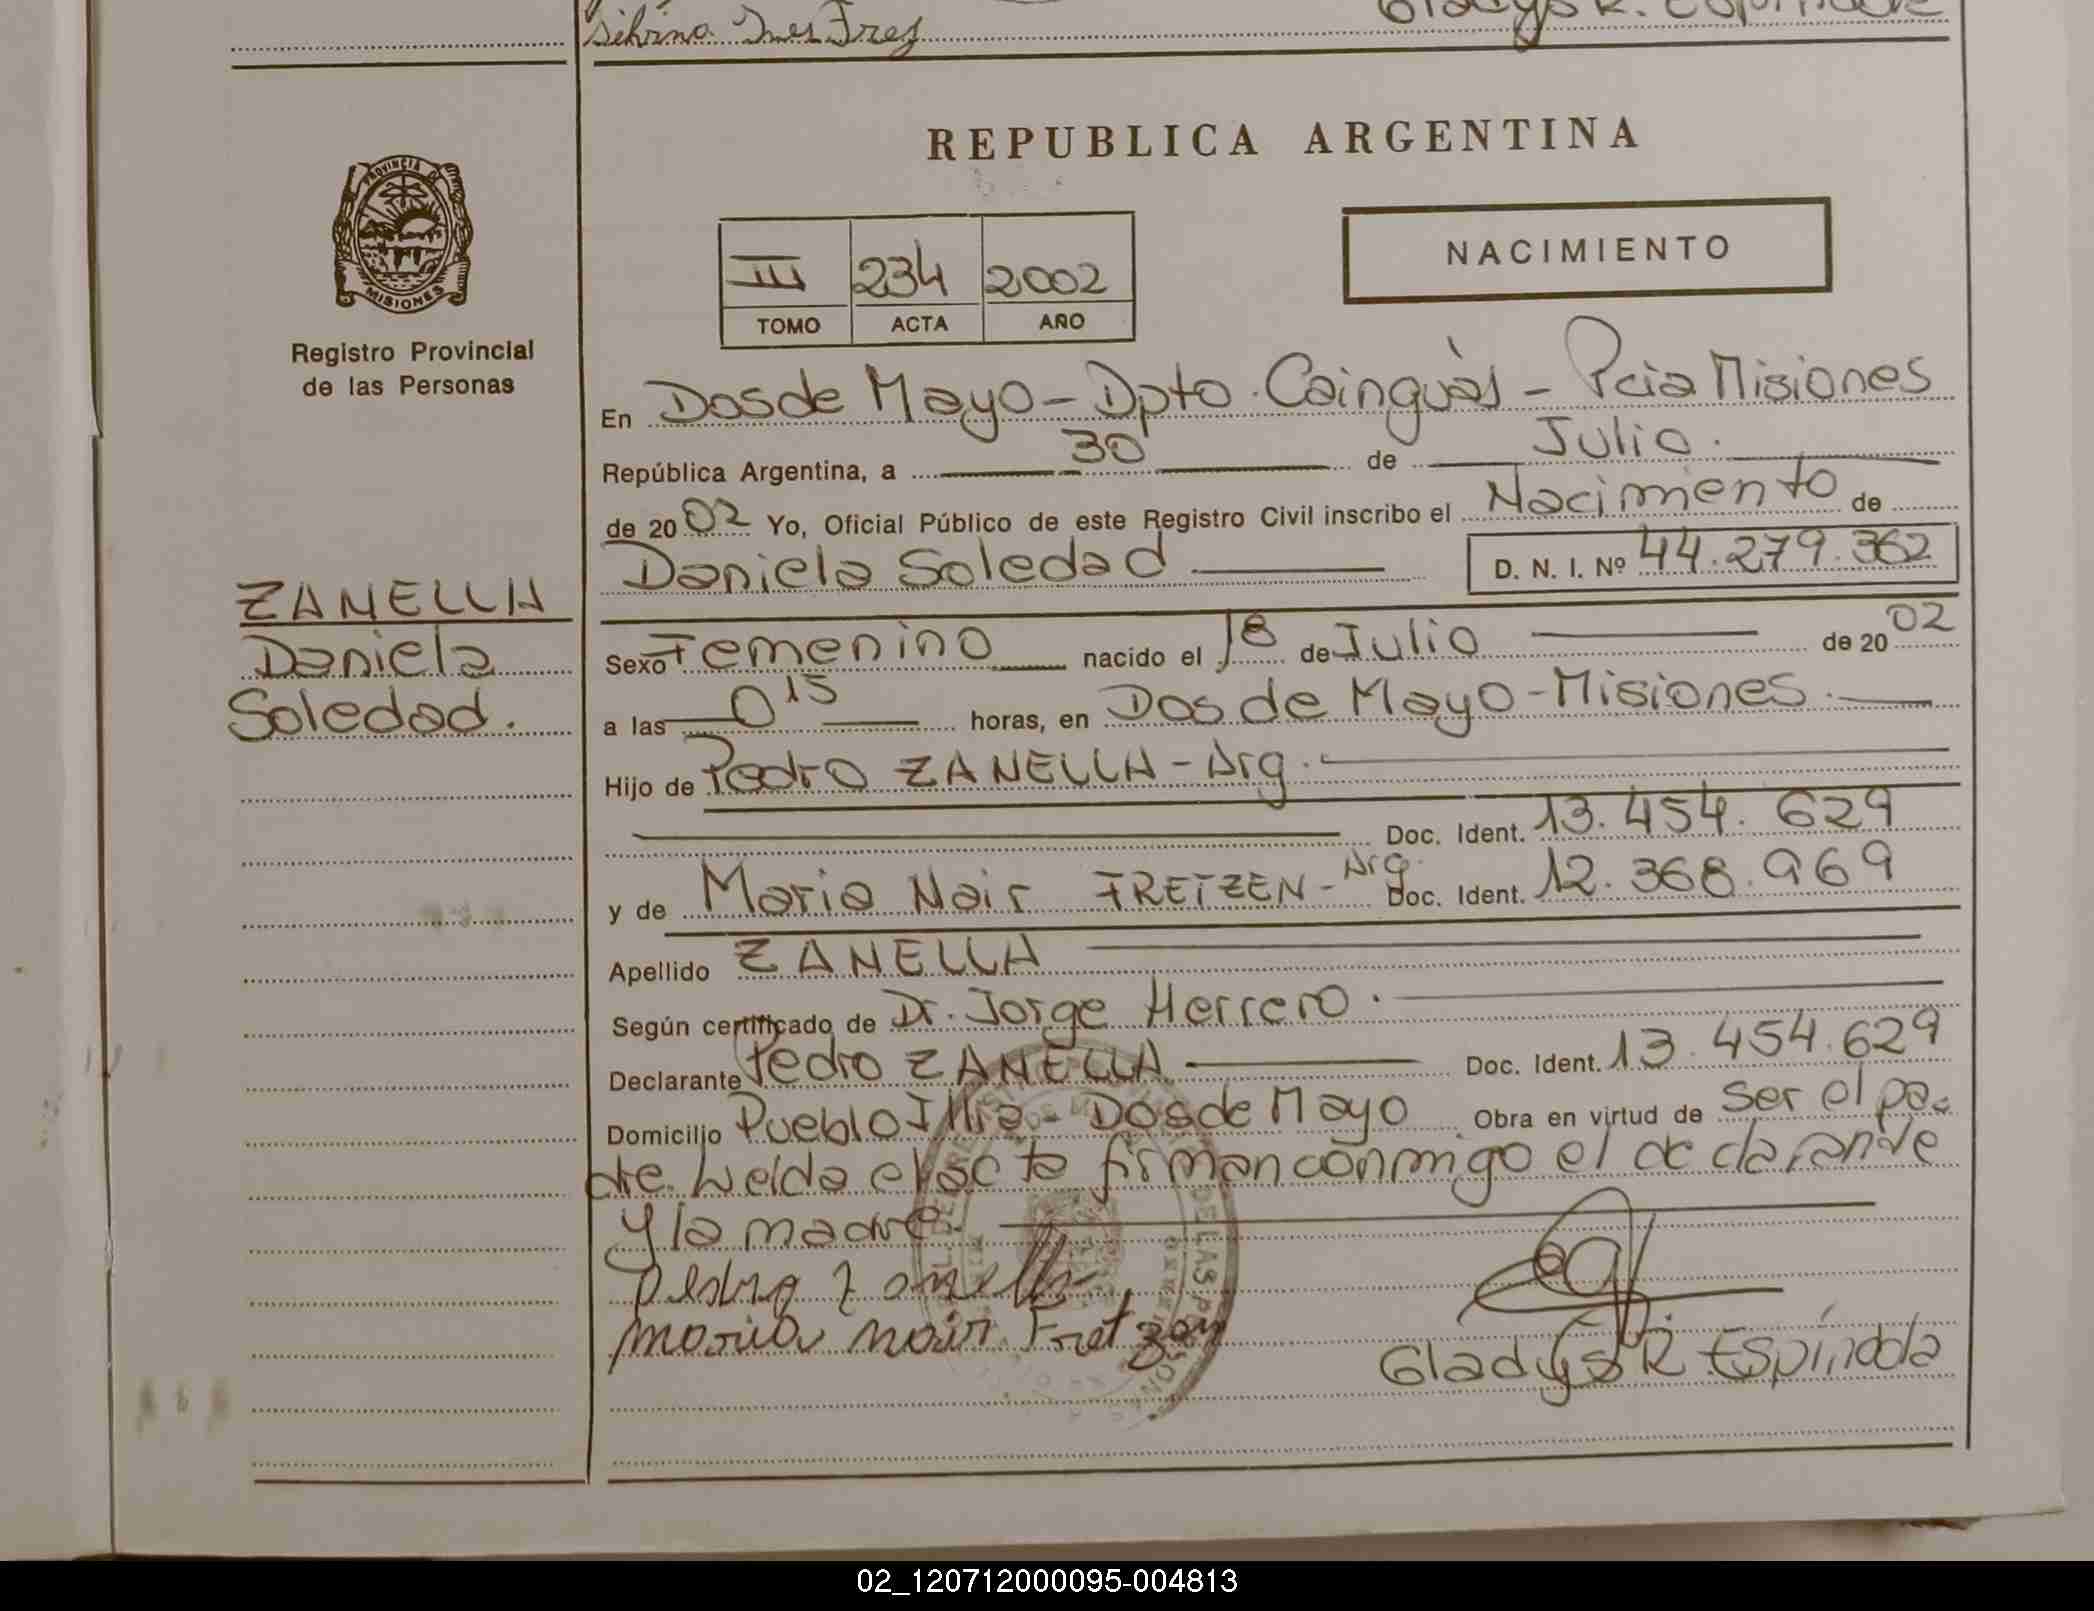 Silvina Ines Frez
Gladys R. Espindola
REPUBLICA ARGENTINA
PROVINCIA DE
MISIONES
Registro Provincial
de las Personas
III 234 2002
TOMO ACTA AÑO
NACIMIENTO
En Dos de Mayo - Dpto. Cainguàs - Pcia Misiones
República Argentina, a 30 de Julio.
de 2002 Yo, Oficial Público de este Registro Civil inscribo el Nacimiento de
Daniela Soledad D. N. I. Nº 44.279.362
ZANELLA
Daniela
Soledad.
Sexo Femenino nacido el 18 de Julio de 2002
a las 0 15 horas, en Dos de Mayo - Misiones.
Hijo de Pedro ZANELLA - Arg.
Doc. Ident. 13.454.629
y de Maria Nair FRETZEN - Arg. Doc. Ident. 12.368.969
Apellido ZANELLA
Según certificado de Dr. Jorge Herrero.
Declarante Pedro ZANELLA Doc. Ident. 13.454.629
Domicilio Pueblo Illia - Dos de Mayo Obra en virtud de ser el pa-
dre. Leida el acta firman conmigo el declarante
y la madre.
Pedro Zanella
Maria nair Fretzen
Gladys R Espíndola
02_120712000095-004813